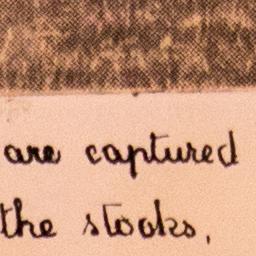 are captured
the stooks,